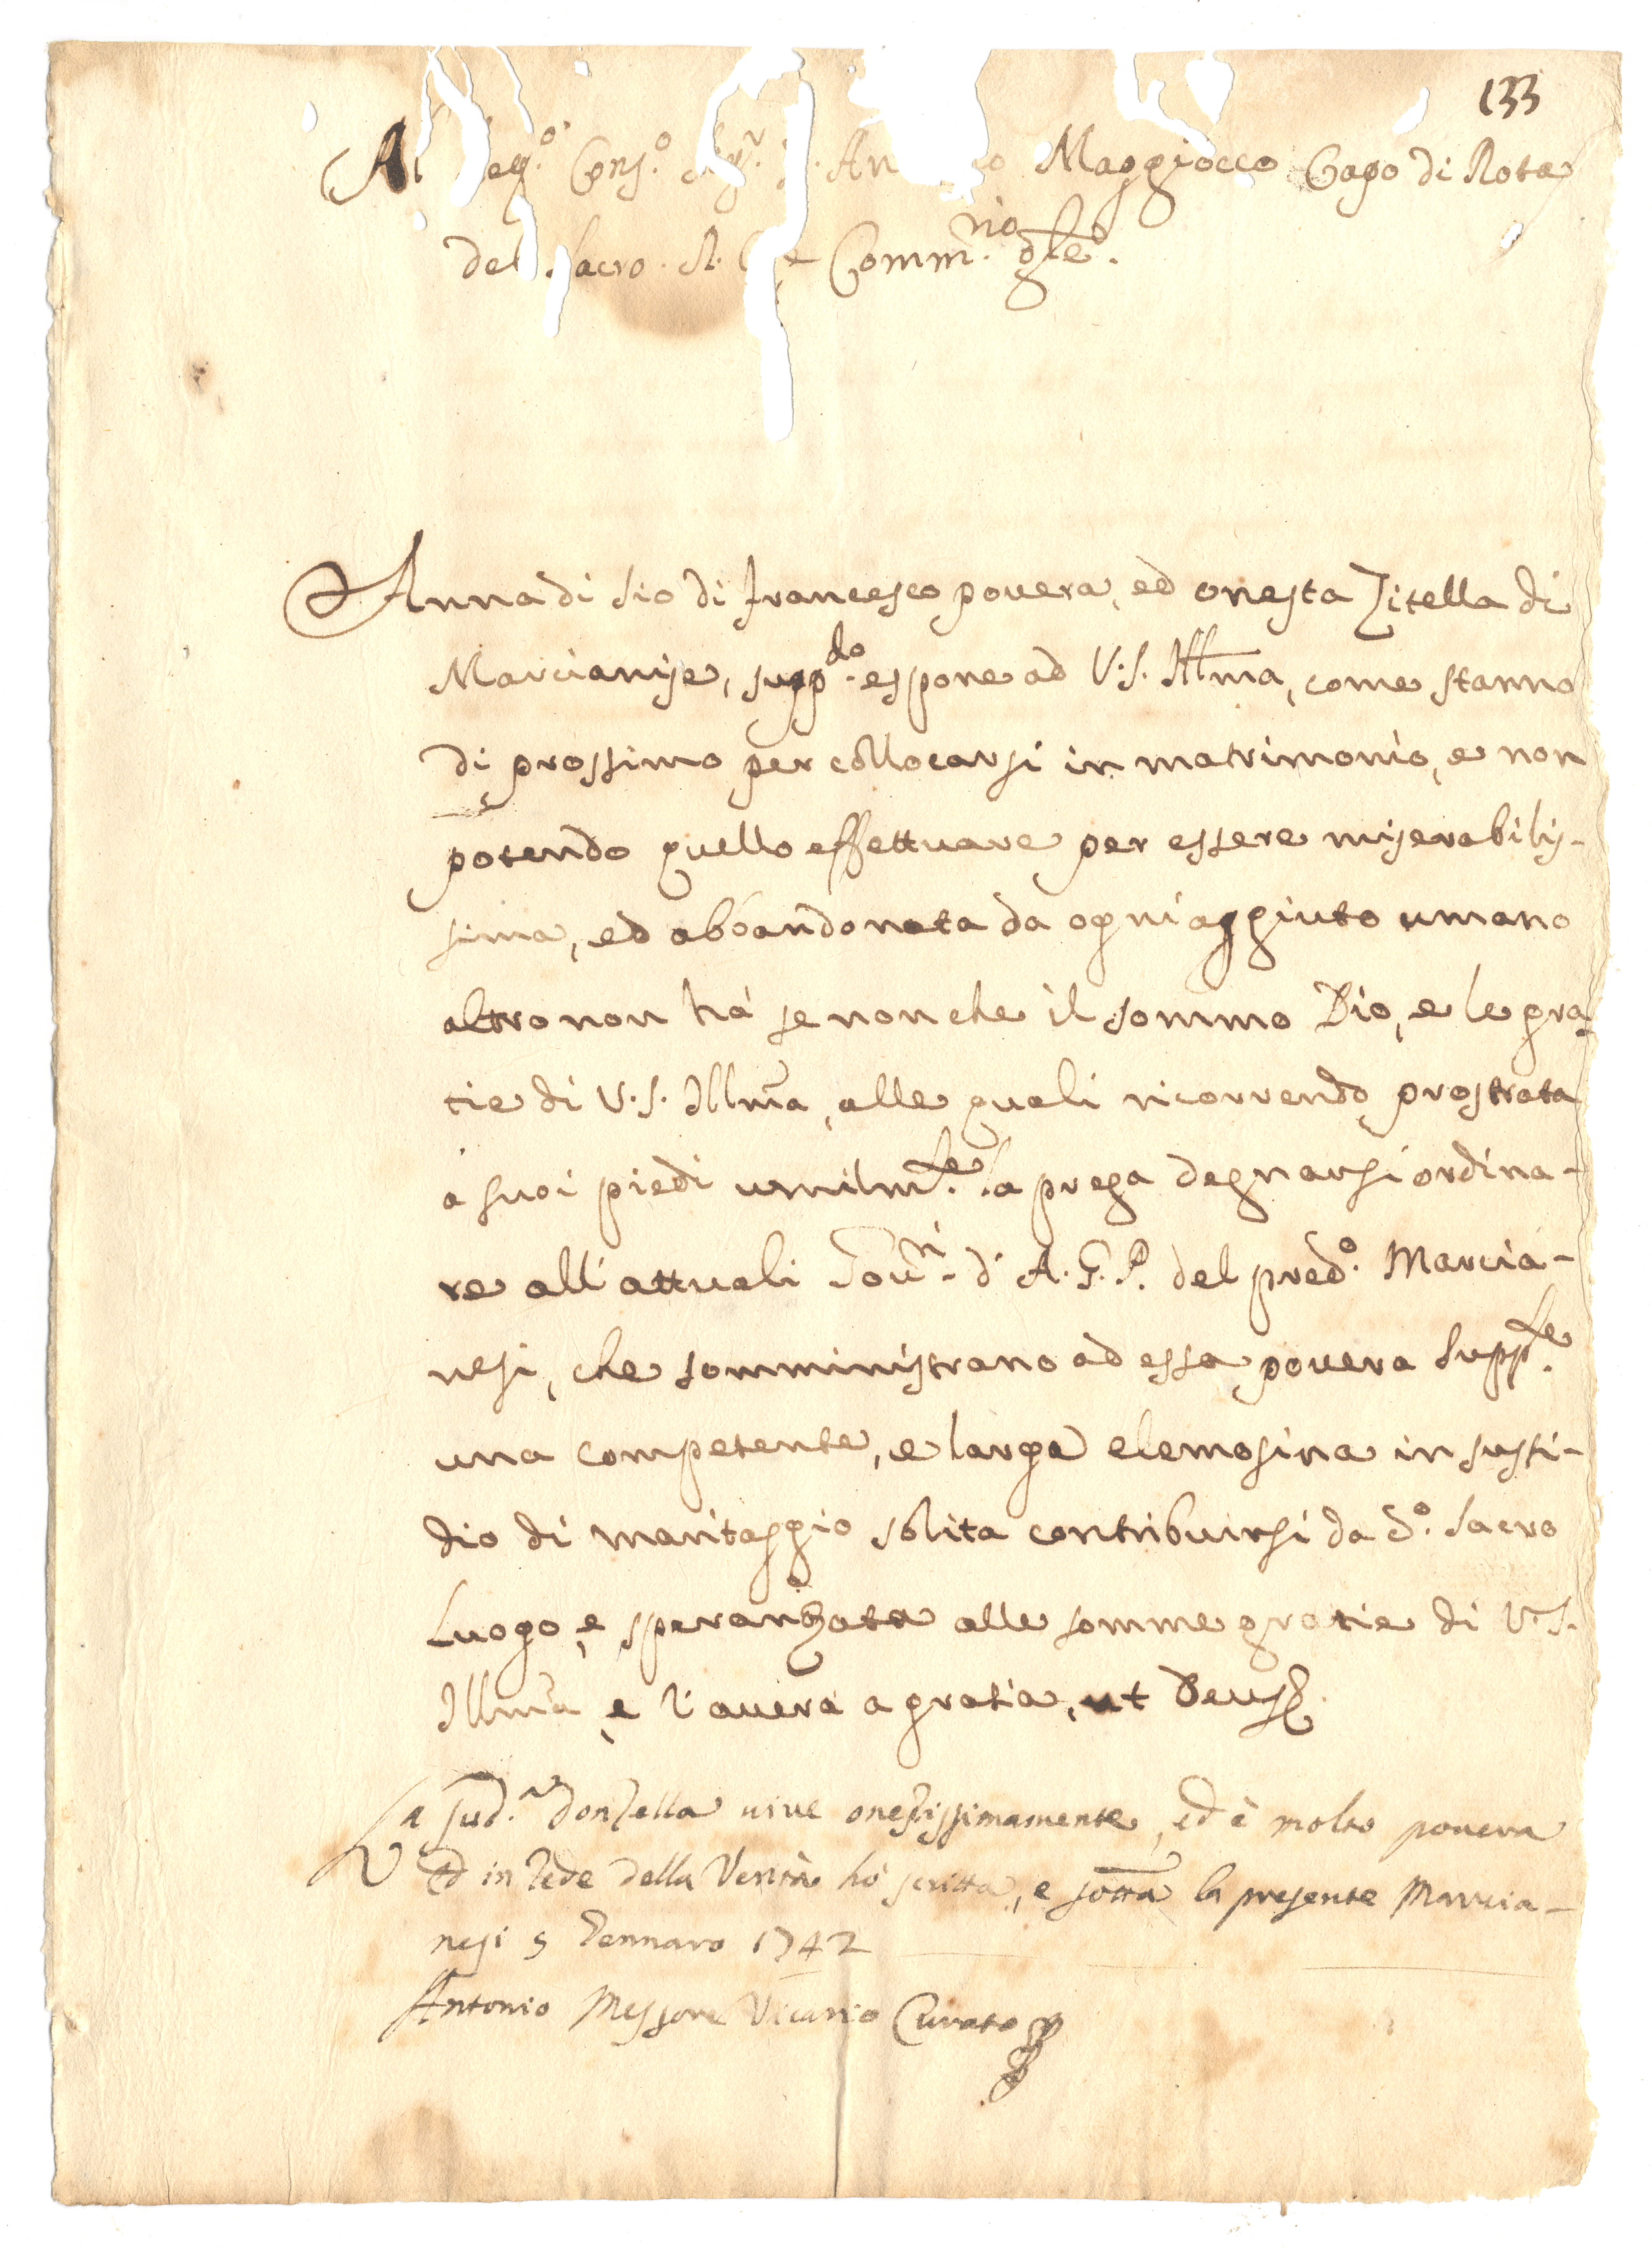 133
Al Reg.o Cons.o Sig.r D. An o Maggiocco Capo di Rota
del Sacro R. C. e Comm.rio d̃le.
Anna di Sio di Francesco povera, ed onesta Zitella di
Marcianise, supp.do espone ad V.S. Illma, come stanno
di prossimo per collocarsi in matrimonio, e non
potendo quello effettuare per essere miserabilis-
sima, ed abbandonata da ogni aggiuto umano
altro non há se non che il sommo Dio, e le gra-
tie di V.S. Illma, alle quali ricorrendo prostrata
a suoi piedi umilm.te la prega degnarsi ordina-
re all'attuali Gov.ni d' A.G.P. del pred.o Marcia-
nesi, che somministrano ad essa povera Supp.te
una competente, e larga elemosina in susti-
dio di maritaggio solita contribuirsi da d.o Sacro
Luogo, e speranzata alle somme gratie di V.S.
Illma, e l'averá a gratia, ut Deus
La sud.a donzella vive onestissimamente, ed è molto povera
Ed in fede della Verità hò scritta, e sotta la presente Marcia-
nesi 5 Gennaro 1742
Antonio Messore Vicario Curato